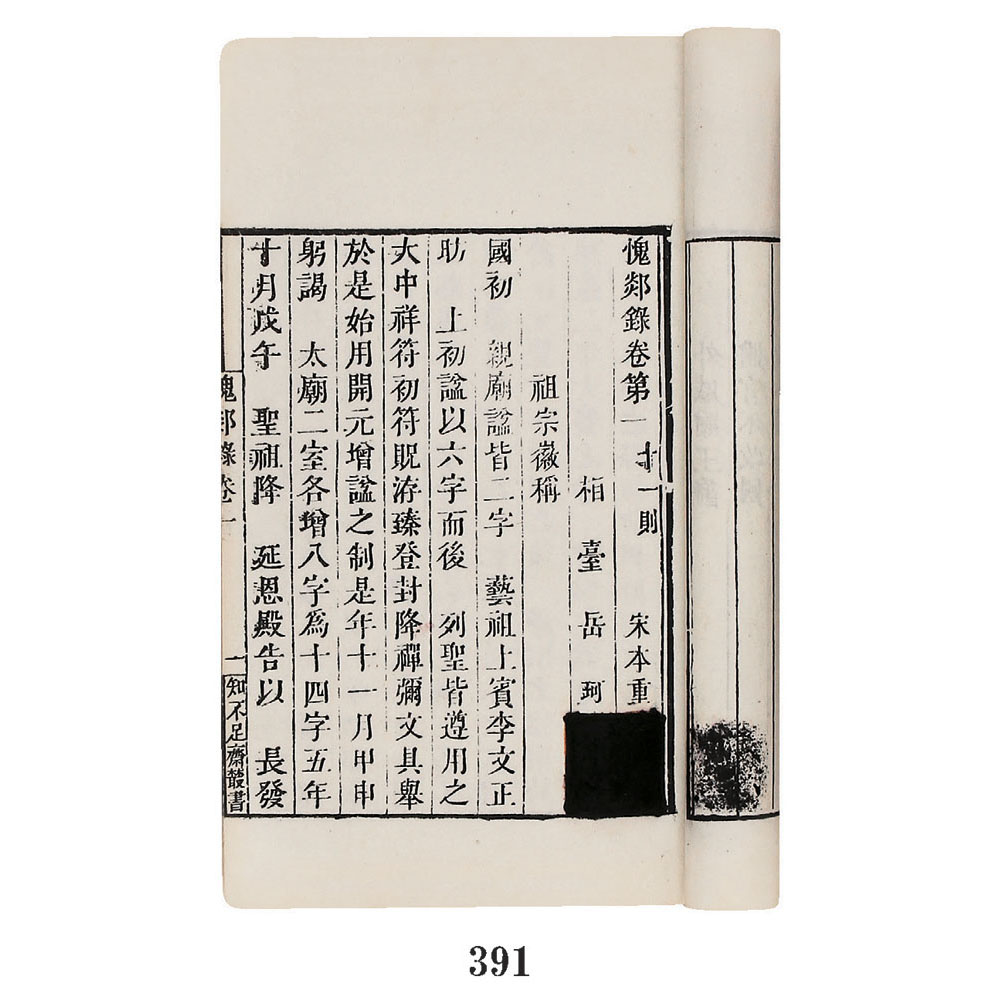 愧郯錄卷第一 十一則 宋本重
相臺岳珂
祖宗徽稱
國初 親廟諡皆二字 藝祖上賓李文正
昉 上初諡以六字而後 列聖皆遵用之
大中祥符初符貺洊臻登封降禪彌文具舉
於是始用開元增諡之制是年十一月甲申
躬謁 太廟二室各增八字爲十四字五年
十月戊午 聖祖降 延恩殿告以 長發
愧郯錄卷一
一
知不足齋叢書
391